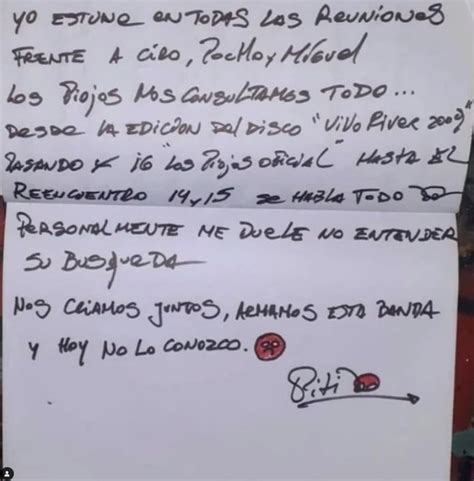 YO ESTUVE EN TODAS LAS REUNIONES
FRENTE A CIRO, POCHO y MIGUEL
LOS PIOJOS NOS CONSULTAMOS TODO...
DESDE LA EDICION DEL DISCO "VIVO RIVER 2009"
PASANDO X IG "LOS PIOJOS OFICIAL" HASTA EL
REENCUENTRO 14 y 15 SE HABLA TODO
PERSONALMENTE ME DUELE NO ENTENDER
SU BUSQUEDA
NOS CRIAMOS JUNTOS, ARMAMOS ESTA BANDA
y HOY NO LO CONOZCO.
Piti